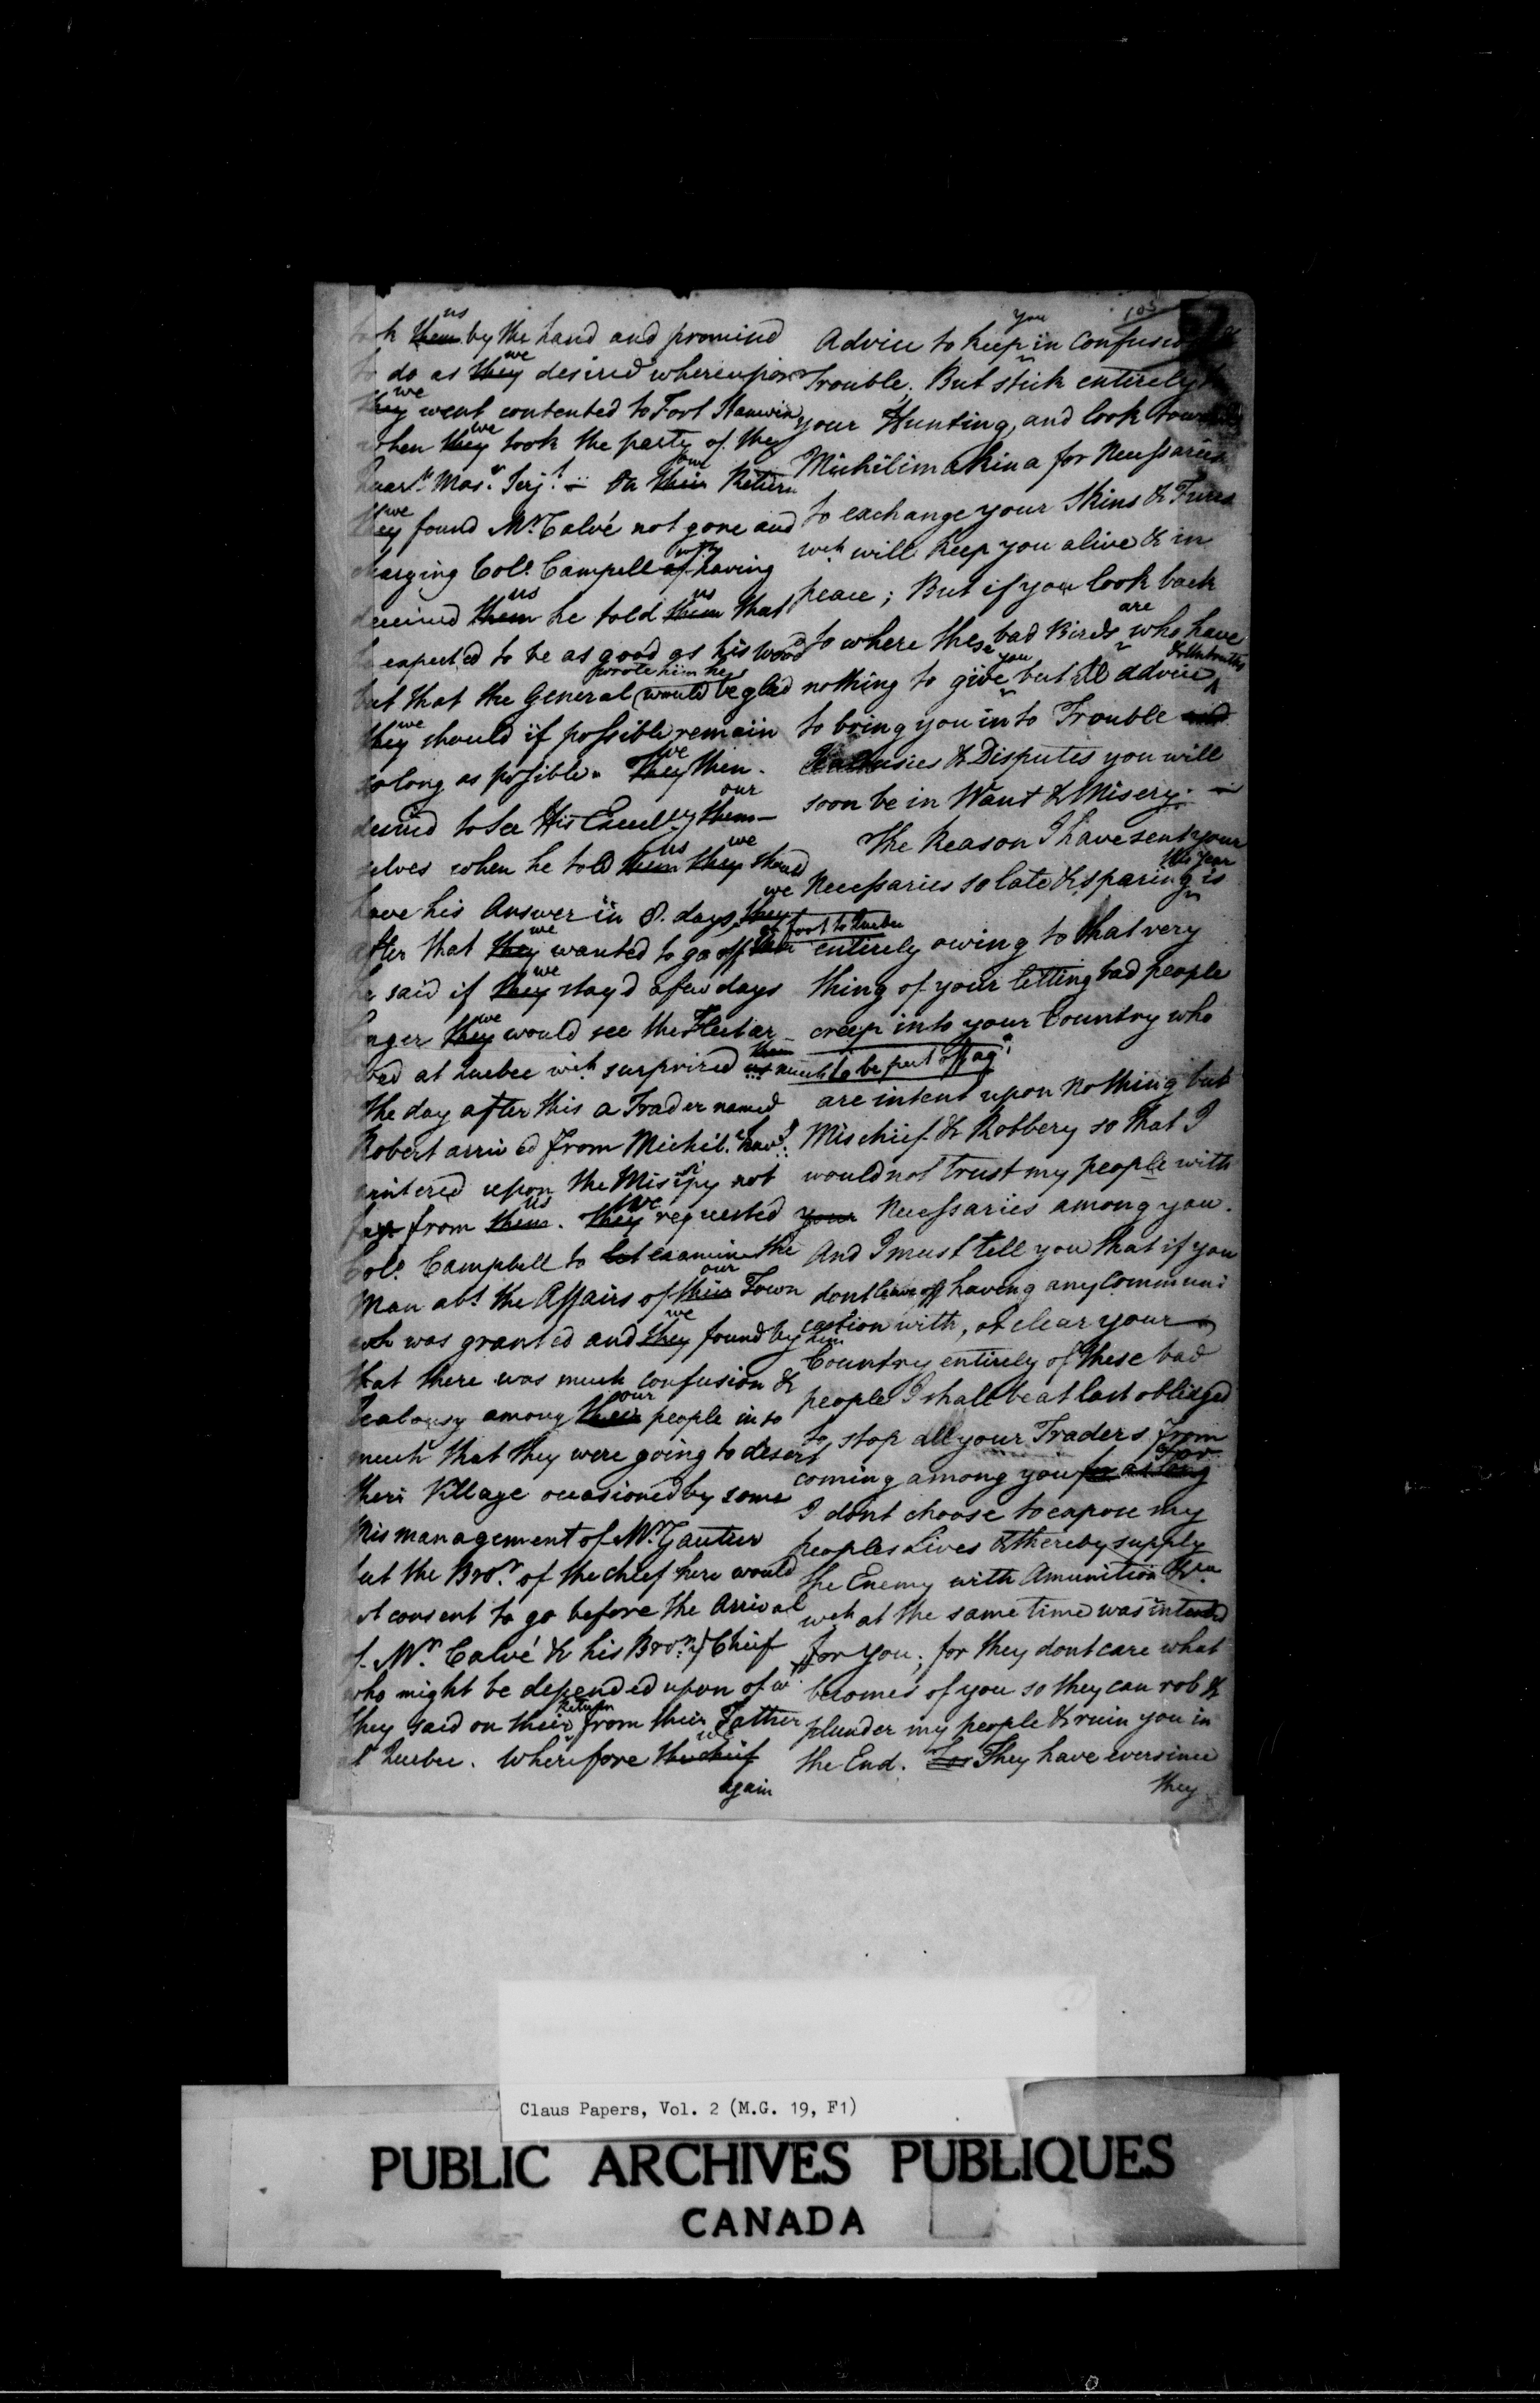 105
took them us by the hand and promised
to do as they we desired whereupon
they we went contented to Fort Stanwix
when they we took the party of the
Quart.r Mas.r Serj.t — On their our Return
they we found Mr. Calvé not gone and
charging Col.o Campell of with having
deceived them us he told them us that
he expected to be as good as his word
but that the General wrote him he would be glad
they we should if possible remain
so long as possible. They we then
desired to see His Excell.y them our
selves when he told them us they we should
have his Answer in 8. days, they we
after that they we wanted to go off on foot to Quebec
he said if they we stay'd a few days
longer they we would see the Fleet ar
rived at Quebec wch. surprised them us much to be put off ag.n
The day after this a Trader named
Robert arrived from Michil. hav.g
wintered upon the Missipy not
far from them us. They we requested
Col.o Campbell to let examine the
Man abt. the Affairs of their our Town
wch was granted and they we found by him
that there was much confusion &
Jealousy among their our people in so
much that they were going to desert
their Village occasioned by some
Mismanagement of Mr. Gautier
but the Bror. of the chief here would
not consent to go before the Arrival
of Mr. Calvé & his Bror. y.e Chief
who might be depended upon of wt.
they said on their Return from their Father
at Quebec. Wherefore the chief we
again
Advice to keep you in Confusion &
Trouble; But stick entirely to
your Hunting, and look towards
Michilimakina for Necessaries
to exchange your Skins & Furrs
wch. will keep you alive & in
peace; But if you look back
to where these bad Birds are who have
nothing to give you but Ill advice & Untruths
to bring you into Trouble and
Jealousies & Disputes you will
soon be in Want & Misery. —
The Reason I have sent your
Necessaries so late & sparing this Year is
entirely owing to that very
thing of your letting bad people
creep into your Country who
are intent upon Nothing but
Mischief & Robbery so that I
would not trust my people with
your Necessaries among you.
And I must tell you that if you
dont leave off having any Communi
cation with, or clear your
Country entirely of these bad
people I shall be at last obliged
to stop all your Traders from
coming among you for as long as for
I dont choose to expose my
peoples Lives & thereby supply
the Enemy with Amunition &ca.
wch at the same time was intended
for you; for they dont care what
becomes of you so they can rob &
plunder my people & ruin you in
the End. For They have ever since
they
Claus Papers, Vol. 2 (M.G. 19, F1)
PUBLIC ARCHIVES PUBLIQUES
CANADA